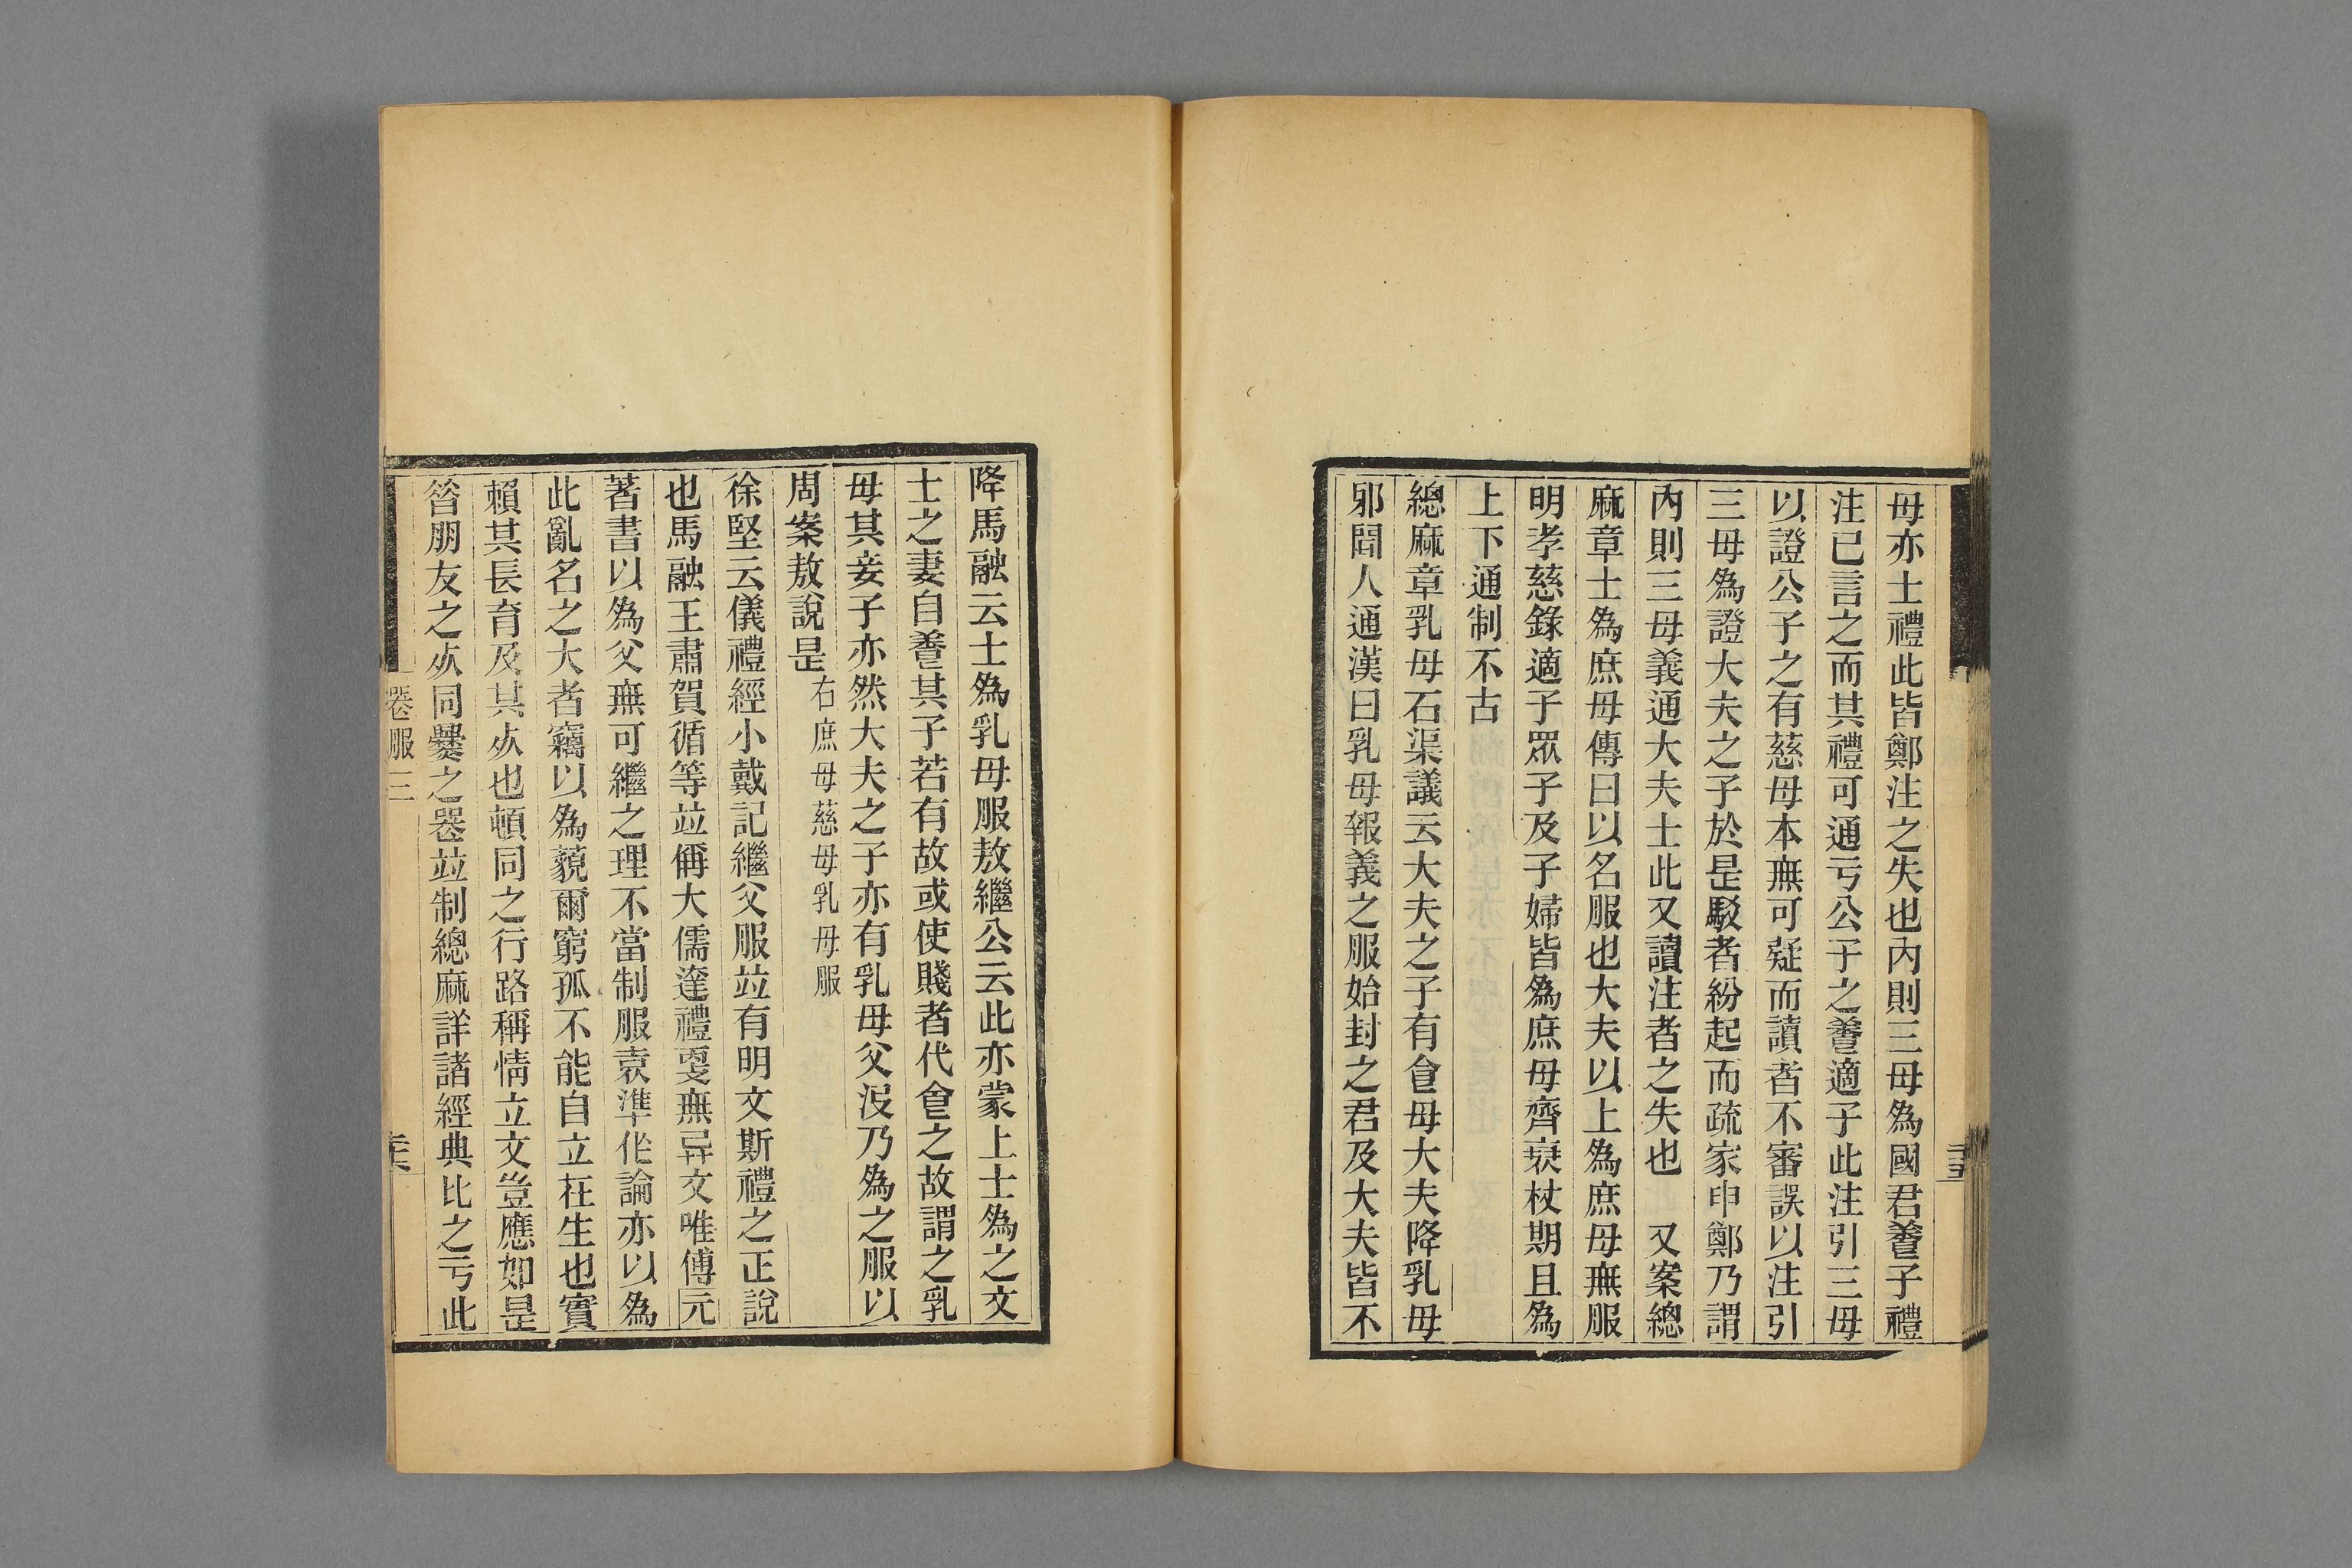 毋亦士禮此皆鄭注之失也內則三毋為國君養子禮
注已言之而其禮可通亏公子之養適子此注引三毋
以證公子之有慈毋本無可疑而讀者不審誤以注引
三毋為證大夫之子於是駁者紛起而疏家申鄭乃謂
內則三毋義通大夫士此又讀注者之失也　又案緦
麻章士為庶毋傳曰以名服也大夫以上為庶毋無服
明孝慈錄適子眾子及子婦皆為庶毋齊衰杖期且為
上下通制不古
緦麻章乳毋石渠議云大夫之子有食毋大夫降乳毋
邪聞人通漢曰乳毋報義之服始封之君及大夫皆不
降馬融云士為乳毋服敖繼公云此亦蒙上士為之文
士之妻自養其子若有故或使賤者代食之故謂之乳
毋其妾子亦然大夫之子亦有乳毋父沒乃為之服以
周案敖說是右庶毋慈毋乳毋服
徐堅云儀禮經小戴記繼父服竝有明文斯禮之正說
也馬融王肅賀循等竝偁大儒達禮更無異文唯傅元
著書以為父無可繼之理不當制服袁準作論亦以為
此亂名之大者竊以為藐爾窮孤不能自立在生也實
賴其長育及其𣦸也頓同之行路稱情立文豈應如是
昝朋友之𣦸同爨之喪竝制緦麻詳諸經典比之亏此
喪服三